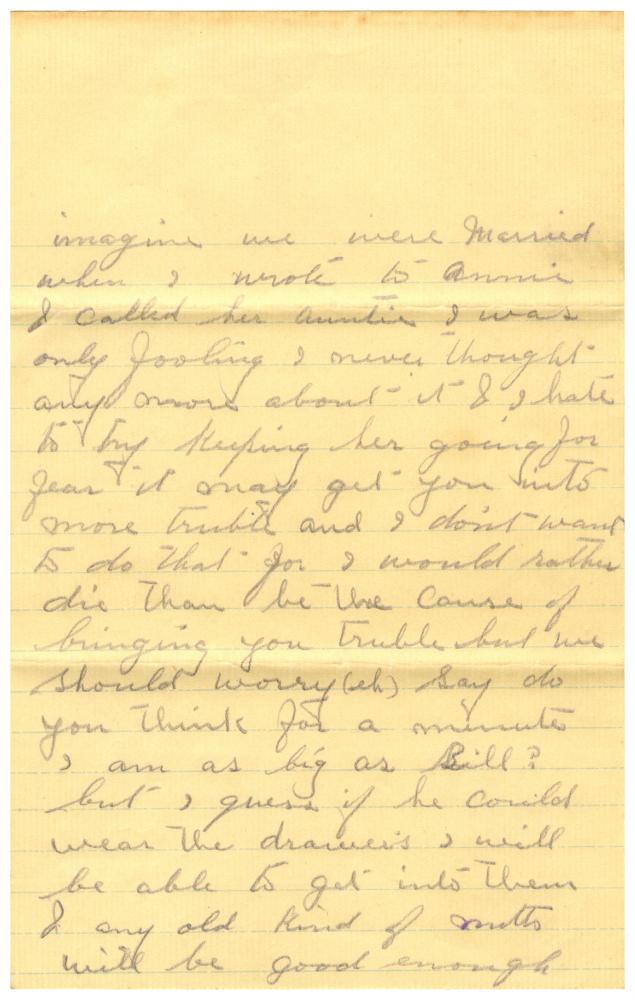 imagine we were Married
when I wrote to Annie
I called her auntie I was
only fooling I never thought
any more about it & I hate
to try keeping her going for
fear it may get you into
more truble and I don't want
to do that for I would rather
die than be the cause of
bringing you truble but we
should worry (eh) Say do
you think for a minute
I am as big as Bill?
but I guess if he could
wear the drawers I will
be able to get into them
& any old kind of mitts
will be good enough